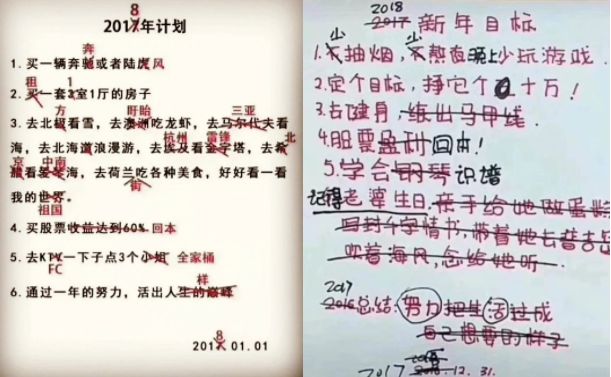 8
2017年计划
奔
1. 买一辆奔驰或者陆虎风
租 1
2. 买一套3室1厅的房子
方 盱眙 三亚
3. 去北极看雪，去澳洲吃龙虾，去马尔代夫看
杭州 雷锋 北
海，去北海道浪漫游，去埃及看金字塔，去希
京 中南
腊看爱琴海，去荷兰吃各种美食，好好看一看
街
我的世界。
祖国
4. 买股票收益达到60% 回本
5. 去KTV一下子点3个小姐 全家桶
FC 样
6. 通过一年的努力，活出人生的巅峰
8
2017 01.01
2018
2017 新年目标
少 少
1.不抽烟，不熬夜晚上少玩游戏.
2.定个目标，挣它个 十万！
3.去健身，练出马甲线.
4.股票盈利回本！
5.学会钢琴识谱
记得老婆生日.亲手给她做蛋糕
写封千字情书,带着她去普吉岛
吹着海风,念给她听.
2017
2016总结:努力把生活过成
自己想要的样子
2017 .12.31.